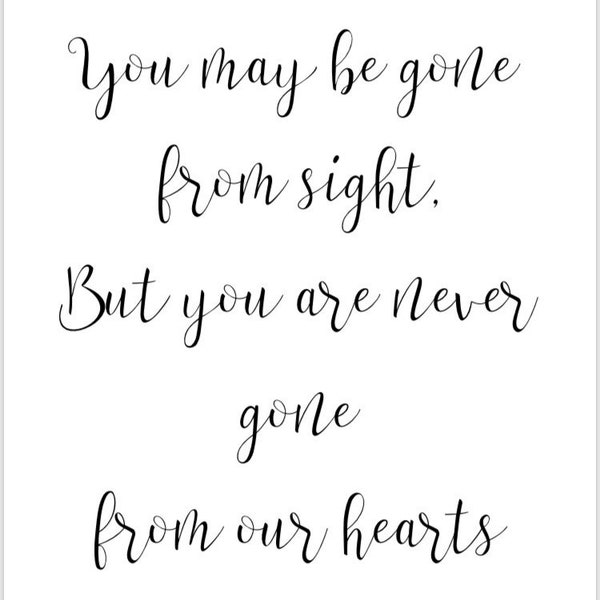 You may be gone
from sight,
But you are never
gone
from our hearts